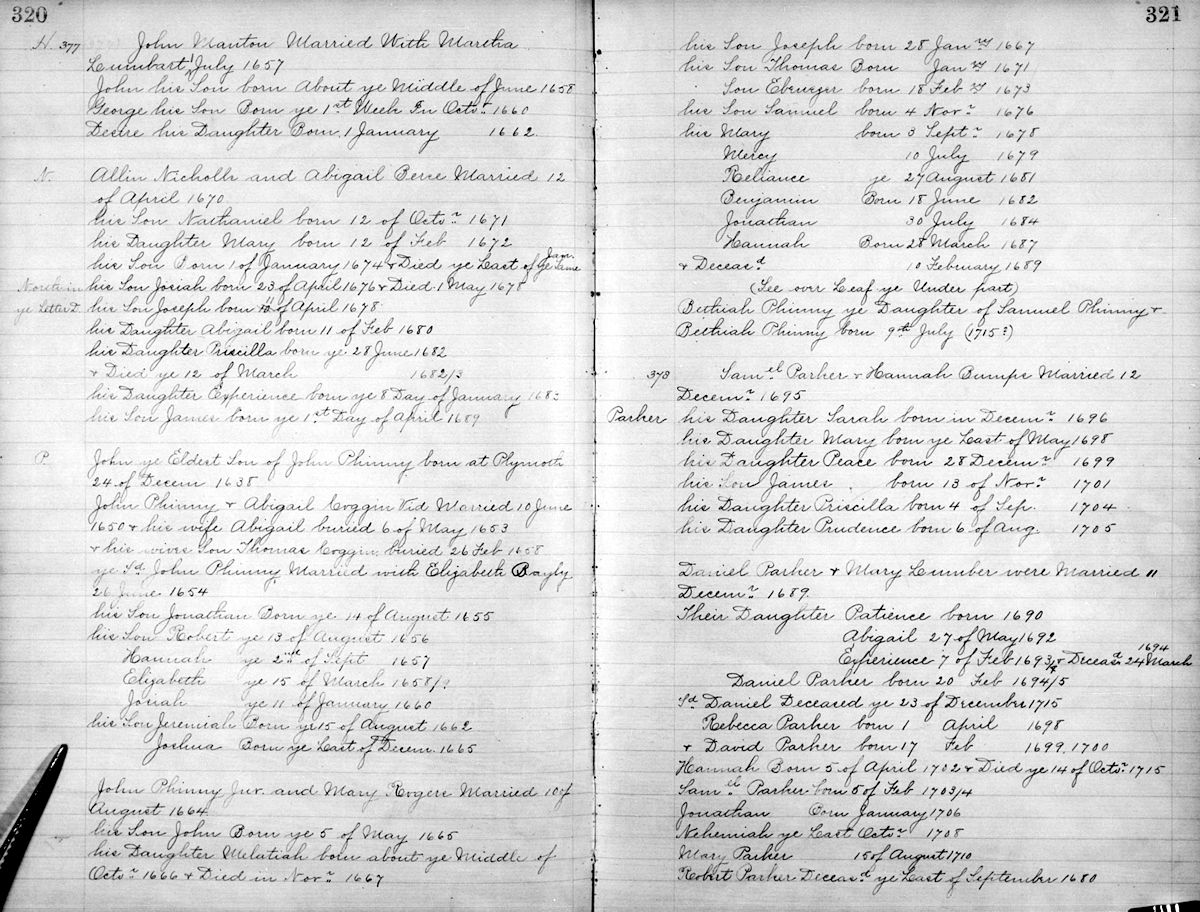 320
H. 377 John Manton Married With Martha
Lumbart 1 July 1657
John his Son born About ye Middle of June 1658
George his Son Born ye 1st Week In Octor 1660
Desire his Daughter Born 1 January 1662
N. Allin Nicholls and Abigail Berce Married 12
of April 1670
his Son Nathaniel born 12 of Octor 1671
his Daughter Mary born 12 of Feb 1672
his Son Born 1 of January 1674 & Died ye Last of ye Same Jan.
his Son Josiah born 23 of April 1676 & Died 1 May 1678
ye Letter D. his Son Joseph born of April 1678
his Daughter Abigail born 11 of Feb 1680
his Daughter Priscilla born ye 28 June 1682
& Died ye 12 of March 1682/3
his Daughter Experience born ye 8 Day of January 1683
his Son James born ye 1st Day of April 1689
P. John ye Eldest Son of John Phinny born at Plymoth
24 of Decem 1638
John Phinny & Abigail Coggin Vid Married 10 June
1650 & his wife Abigail buried 6 of May 1653
& his wives Son Thomas Coggin buried 26 Feb 1658
ye Sd John Phinny Married with Elizabeth Bayly
26 June 1654
his Son Jonathan Born ye 14 of August 1655
his Son Robert ye 13 of August 1656
Hannah ye 2nd of Sept 1657
Elizabeth ye 15 of March 1658/9
Josiah ye 11 of January 1660
his Son Jeremiah Born ye 15 of August 1662
Joshua Born ye Last of Decem. 1665
John Phinny Jur. and Mary Rogers Married 10 of
August 1664
his Son John Born ye 5 of May 1665
his Daughter Melatiah born about ye Middle of
Octor 1666 & Died in Novr 1667
321
his Son Joseph born 28 Janry 1667
his Son Thomas Born Janry 1671
Son Ebenezer born 18 Febry 1673
his Son Samuel born 4 Novr 1676
his Mary born 3 Septr 1678
Mercy 10 July 1679
Reliance ye 27 August 1681
Benjamin Born 18 June 1682
Jonathan 30 July 1684
Hannah Born 28 March 1687
& Deceasd 10 February 1689
(See over Leaf ye Under part)
Bethiah Phinny ye Daughter of Samuel Phinny &
Bethiah Phinny born 9th July (1715?)
373 Samel Parker & Hannah Bumps Married 12
Decemr 1695
Parker his Daughter Sarah born in Decemr 1696
his Daughter Mary born ye Last of May 1698
his Daughter Peace born 28 Decemr 1699
his Son James born 13 of Novr 1701
his Daughter Priscilla born 4 of Sep. 1704
his Daughter Prudence born 6 of Aug. 1705
Daniel Parker & Mary Lumber were Married 11
Decemr 1689.
Their Daughter Patience born 1690
Abigail 27 of May 1692
Experience 7 of Feb 1693/4 & Deceasd 24 March 1694
Daniel Parker born 20 Feb 1694/5
Sd Daniel Deceased ye 23 of December 1715
Rebecca Parker born 1 April 1698
& David Parker born 17 Feb 1699, 1700
Hannah Born 5 of April 1702 & Died ye 14 of Octor 1715
Samel Parker born 5 of Feb 1703/4
Jonathan Born January 1706
Nehemiah ye Last Octor 1708
Mary Parker 15 of August 1710
Robert Parker Deceasd ye Last of September 1680